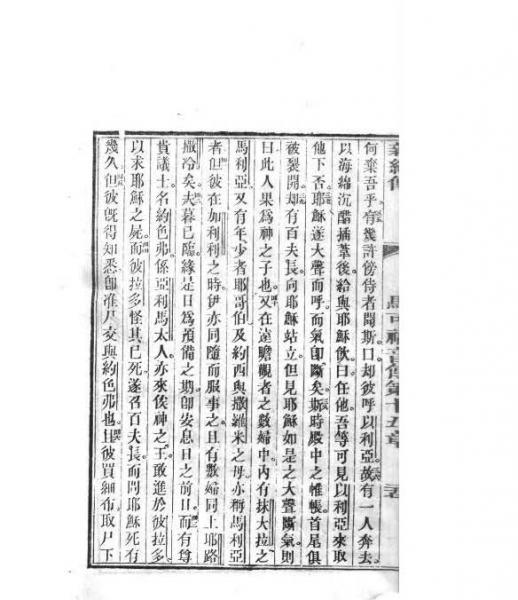 馬可福音傳第十五章
何棄吾乎。有幾許傍侍者聞斯口。却彼呼以利亞。故有一人奔去。
以海綿沉醋插葦。後給與耶穌飲。曰任他。吾等可見以利亞來取
他下否。耶穌遂大聲而呼。而氣即斷矣。斯時殿中之帷帳。首尾俱
被裂開。却有百夫長。向耶穌站立。但見耶穌如是之大聲斷氣。則
曰此人果為神之子也。又在遠瞻觀者之數婦中。內有抹大拉之
馬利亞。又有年少者耶哥伯及約西與撒羅米之母。亦稱馬利亞
者。但彼在加利利之時。伊亦同隨而服事之。且有數婦同上耶路
撒冷矣。夫暮已臨。緣是日為預備之期。即安息日之前日。而有尊
貴議士。名約色弗。係亞利馬太人。亦來俟神之王。敢進於彼拉多
以求耶穌之屍。而彼拉多怪其已死。遂召百夫長。而問耶穌死有
幾久。但彼既得知悉。即准尸交與約色弗也。且彼買細布取尸下